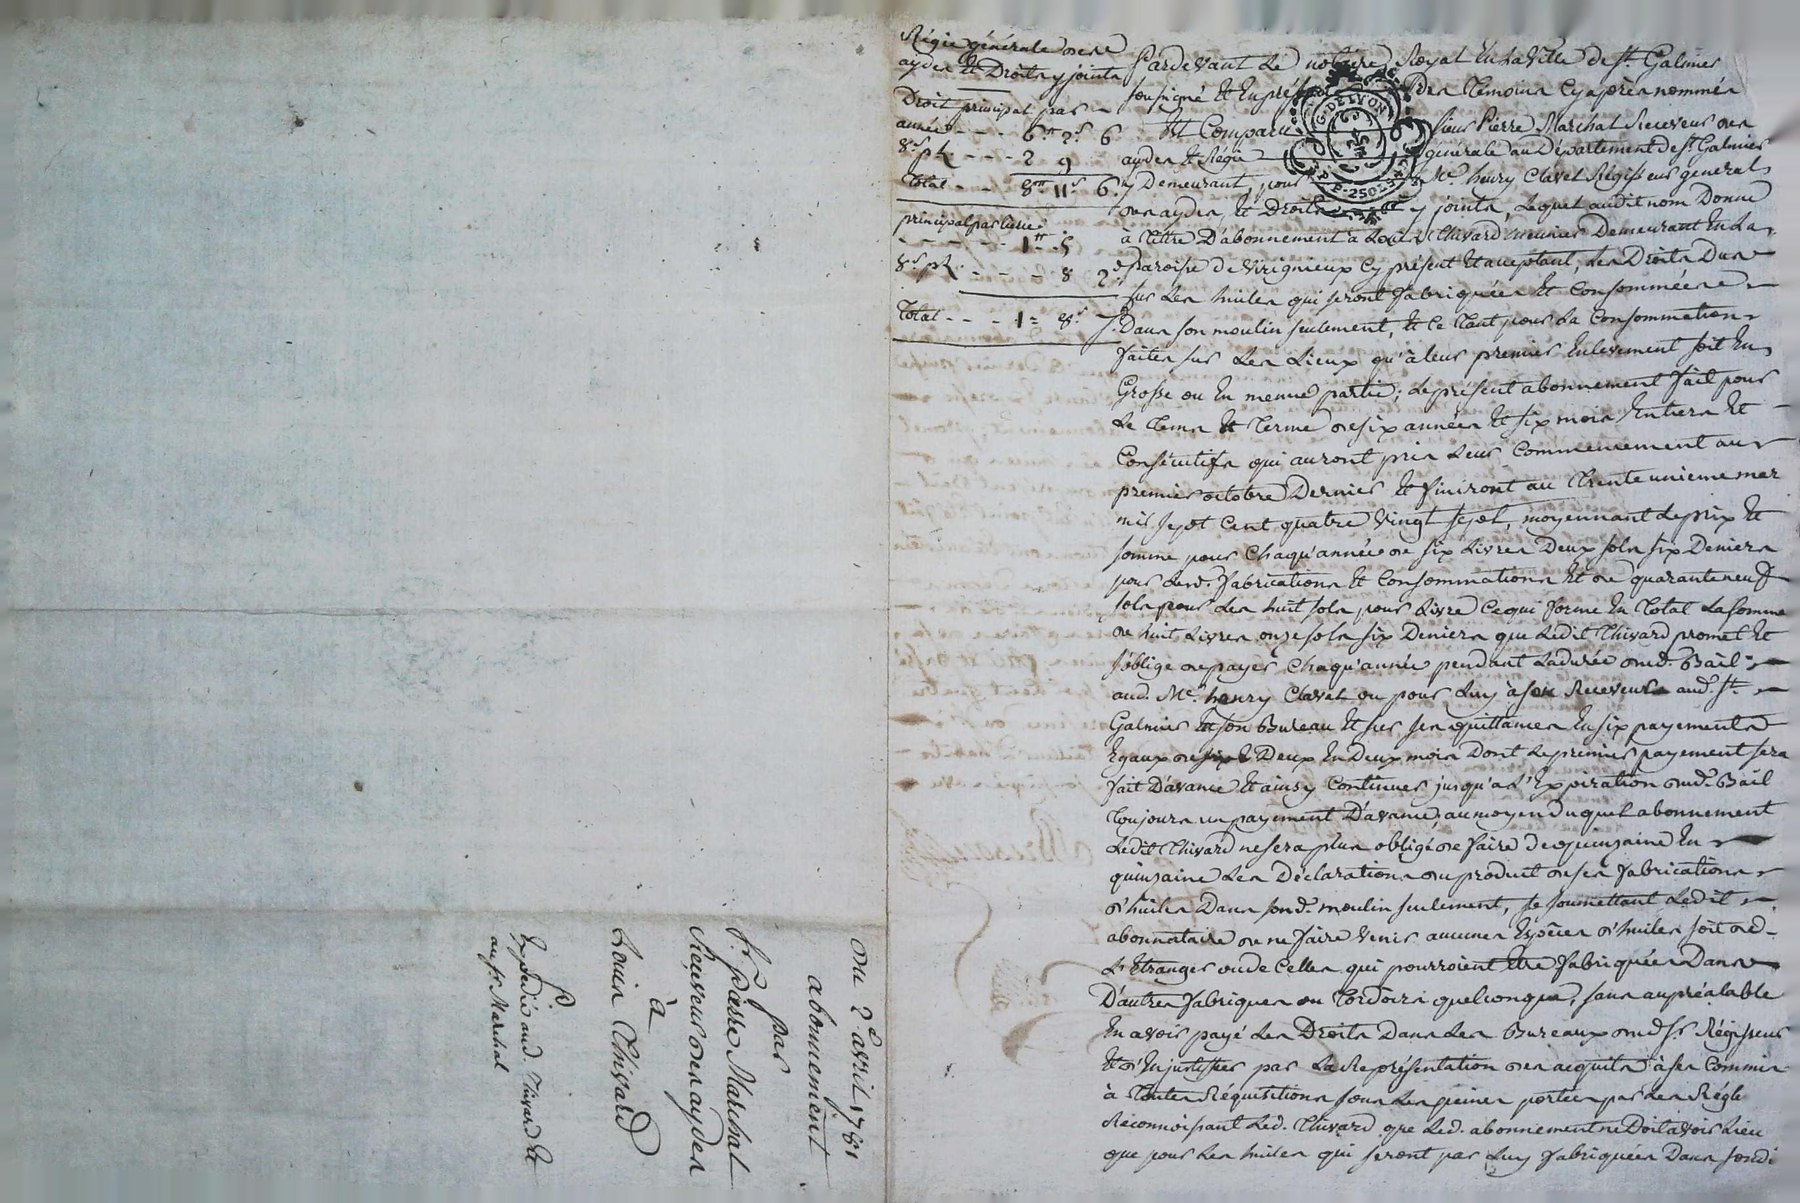 Régie générale des
aydes Et Droits y joints
Droit principal par
année - - - 6 ₶ 2 s 6
8 s p ₶ - - - 2 9
Total - - 8 ₶ 11 s 6
principal par tierie
- - - - - 1 ₶ 5
8 s p ₶ - - - - 8 2
Total - - - 1 = 8 s
Pardevant Le notaire Royal En La Ville de St. Galmier
soussigné Et En présence Des Temoins Cy après nommés
Est Comparu sieur Pierre Marchal Receveur des
aydes Et Régie générale au Département de St Galmier
y Demeurant, pour Me. henry Clavel Régisseur general
des aydes, Et Droits y joints, Lequel audit nom Donne
à Titre D'abonnement à Louis Thivard meunier Demeurant En La
Paroisse de Virignieux Cy présent Et acceptant, Les Droits Dus
sur Les huiles qui seront fabriquées Et Consommées
Dans son moulin seulement, Et Ce Tant pour La Consommation
faites sur Les Lieux qu'à leur premier Enlevement soit En
Grosse ou En menue partie; Le présent abonnement fait pour
Le Tems Et Terme de six années Et six mois Entiers Et
Consécutifs qui auront pris Leur Commencement au
premier octobre Dernier Et finiront au Trente unieme mar
mil sept Cent quatre Vingt sept, moyennant Le prix Et
somme pour Chaqu'année de six Livres Deux sols six Deniers
pour Lesd. fabrications Et Consommations Et de quarante neuf
sols pour Les huit sols pour Livre Ce qui forme En Total La somme
de huit Livres onze sols six Deniers que Ledit Thivard promet Et
s'oblige de payer Chaqu'année pendant La durée dud. Bail
aud. Me. henry Clavel ou pour Luy à son Receveur aud. St.
Galmier Et son Bureau Et sur ses quittances En six payements
Egaux de Deux En Deux mois Dont Le premier payement sera
fait D'avance Et ainsy Continuer jusqu'à L'Expiration dud. Bail
Toujours un payement D'avance, au moyen du quel abonnement
Ledit Thivard ne sera plus obligé de faire de quinzaine En
quinzaine Les Déclarations du produit de ses fabrications
d'huiles Dans sond. moulin seulement, se soumettant Ledit
abonnataire de ne faire Venir aucunes Espèces d'huiles soit de
L'Etranger ou de Celles qui pourroient Etre fabriquées Dans
D'autres fabriques ou Tordoirs quelconque, sans au préalable
En avoir payé Les Droits Dans Les Bureaux dud. Sr. Régisseur
Et d'En justifier par La Représentation des acquits à ses Commis
à Toutes Réquisitions sous Les peines portées par Les Régle
Reconnoissant Led. Thivard que Led. abonnement ne Doit avoir Lieu
que pour Les huiles qui seront par Luy fabriquées Dans sond.
Du 2e. avril 1781
abonnement
par
Sr. Pierre Marchal
Receveur des aydes
à
Louis Thivard
Expédié aud. Thivard Et
au Sr. Marchal